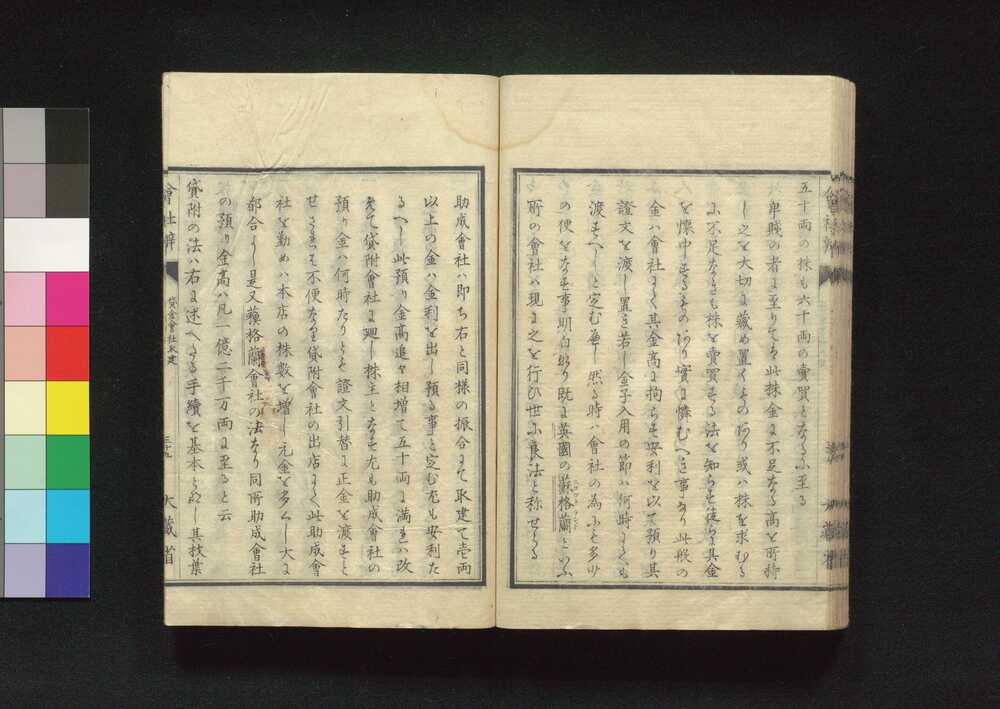 五十両の株も六十両の賣買となるふ至る
卑賤の者に至りてハ此株金に不足なる高を所持
し之を大切に藏め置くものあり或ハ株を求むる
に不足なきも株を賣買する法を知らす徒らに其金
を懐中するものあり實に憐むへき事なり此般の
金ハ會社にて其金高に拘らす安利を以て預り其
證文を渡し置き若し金子入用の節ハ何時にても
渡すへしと定むべし然る時ハ會社の為ふも多少
の便をなす事明白なり既に英國の蘇格蘭といふ
スコットランド
所の會社ハ現に之を行ひ世に良法と称せらる
助成會社ハ即ち右と同様の振合にて取建て壱両
以上の金ハ金利を出し預る事と定む尤も安利た
るへし此預り金高追々相増て五十両に満れハ改
めて貸附會社に廻し株主となす尤も助成會社の
預り金ハ何時たりとも證文引替に正金を渡すと
せさるも不便なり貸附會社の出店にて此助成會
社を勤めハ本店の株數を増し元金を多くし大に
都合よし是又蘓格蘭會社の法なり同所助成會社
の預り金高ハ凡一億二千万両に至ると云
貸附の法ハ右に述へたる手續を基本とし其枝葉
會社辨
貸金會社取建
三十九
大藏省